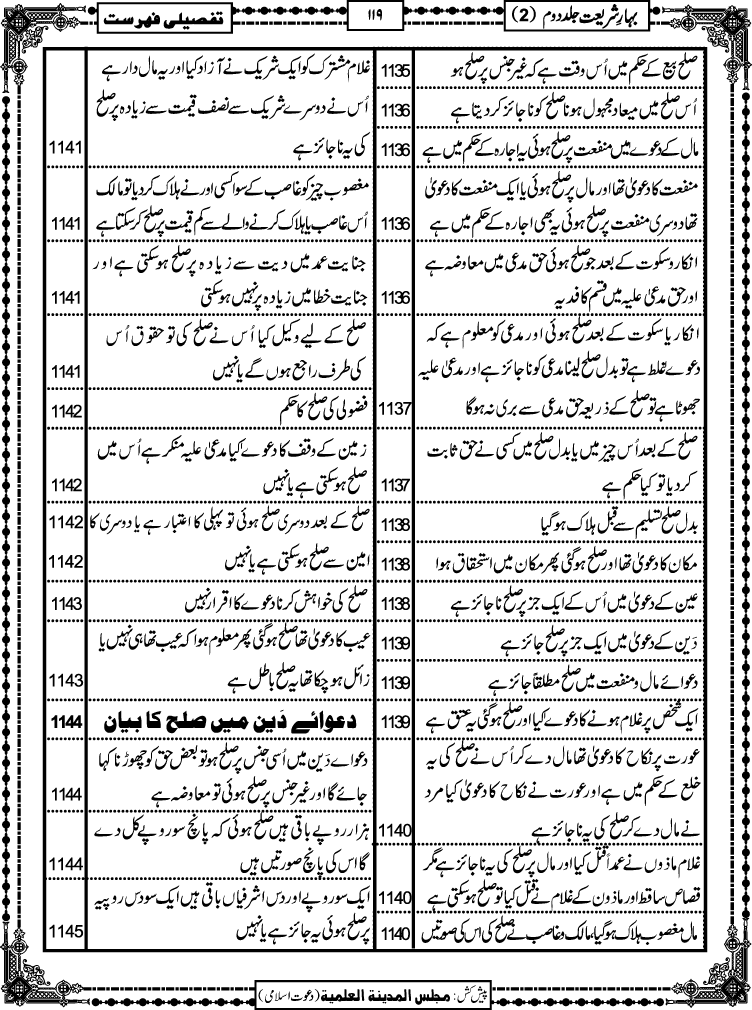 بہارِ شریعت جلد دوم (2)
۱۱۹
تفصیلی فہرست
صلح بیع کے حکم میں اُس وقت ہے کہ غیر جنس پر صلح ہو 1135
اُس صلح میں میعاد مجہول ہونا صلح کو ناجائز کر دیتا ہے 1136
مال کے دعوے میں منفعت پر صلح ہوئی یہ اجارہ کے حکم میں ہے 1136
منفعت کا دعویٰ تھا اور مال پر صلح ہوئی یا ایک منفعت کا دعویٰ
تھا دوسری منفعت پر صلح ہوئی یہ بھی اجارہ کے حکم میں ہے 1136
انکار و سکوت کے بعد جو صلح ہوئی حق مدعی میں معاوضہ ہے
اور حق مدعیٰ علیہ میں قسم کا فدیہ 1136
انکار یا سکوت کے بعد صلح ہوئی اور مدعی کو معلوم ہے کہ
دعوے غلط ہے تو بدل صلح لینا مدعی کو ناجائز ہے اور مدعیٰ علیہ
جھوٹا ہے تو صلح کے ذریعہ حق مدعی سے بری نہ ہوگا 1137
صلح کے بعد اُس چیز میں یا بدل صلح میں کسی نے حق ثابت
کر دیا تو کیا حکم ہے 1137
بدل صلح تسلیم سے قبل ہلاک ہوگیا 1138
مکان کا دعویٰ تھا اور صلح ہوگئی پھر مکان میں استحقاق ہوا 1138
عین کے دعویٰ میں اُس کے ایک جز پر صلح ناجائز ہے 1138
دَین کے دعویٰ میں ایک جز پر صلح جائز ہے 1139
دعوائے مال و منفعت میں صلح مطلقاً جائز ہے 1139
ایک شخص پر غلام ہونے کا دعوے کیا اور صلح ہوگئی یہ عتق ہے 1139
عورت پر نکاح کا دعویٰ تھا مال دے کر اُس نے صلح کی یہ
خلع کے حکم میں ہے اور عورت نے نکاح کا دعویٰ کیا مرد
نے مال دے کر صلح کی یہ ناجائز ہے 1140
غلام ماذوں نے عمداً قتل کیا اور مال پر صلح کی یہ ناجائز ہے مگر
قصاص ساقط اور ماذون کے غلام نے قتل کیا تو صلح ہوسکتی ہے 1140
مال مغصوب ہلاک ہوگیا، مالک و غاصب نے صلح کی اس کی صورتیں 1140
غلام مشترک کو ایک شریک نے آزاد کیا اور یہ مال دار ہے
اُس نے دوسرے شریک سے نصف قیمت سے زیادہ پر صلح
کی یہ ناجائز ہے 1141
مغصوب چیز کو غاصب کے سوا کسی اور نے ہلاک کر دیا تو مالک
اُس غاصب یا ہلاک کرنے والے سے کم قیمت پر صلح کرسکتا ہے 1141
جنایت عمد میں دیت سے زیادہ پر صلح ہوسکتی ہے اور
جنایت خطا میں زیادہ پر نہیں ہوسکتی 1141
صلح کے لیے وکیل کیا اُس نے صلح کی تو حقوق اُس
کی طرف راجع ہوں گے یا نہیں 1141
فضولی کی صلح کا حکم 1142
زمین کے وقف کا دعوے کیا مدعیٰ علیہ منکر ہے اُس میں
صلح ہوسکتی ہے یا نہیں 1142
صلح کے بعد دوسری صلح ہوئی تو پہلی کا اعتبار ہے یا دوسری کا 1142
امین سے صلح ہوسکتی ہے یا نہیں 1142
صلح کی خواہش کرنا دعوے کا اقرار نہیں 1143
عیب کا دعویٰ تھا صلح ہوگئی پھر معلوم ہوا کہ عیب تھا ہی نہیں یا
زائل ہوچکا تھا یہ صلح باطل ہے 1143
دعوائے دَین میں صلح کا بیان 1144
دعواے دَین میں اُسی جنس پر صلح ہو تو بعض حق کو چھوڑنا کہا
جائے گا اور غیر جنس پر صلح ہوئی تو معاوضہ ہے 1144
ہزار روپے باقی ہیں صلح ہوئی کہ پانچ سو روپے کل دے
گا اس کی پانچ صورتیں ہیں 1144
ایک سو روپے اور دس اشرفیاں باقی ہیں ایک سو دس روپیہ
پر صلح ہوئی یہ جائز ہے یا نہیں 1145
پیش کش: مجلس المدینۃ العلمیۃ (دعوت اسلامی)